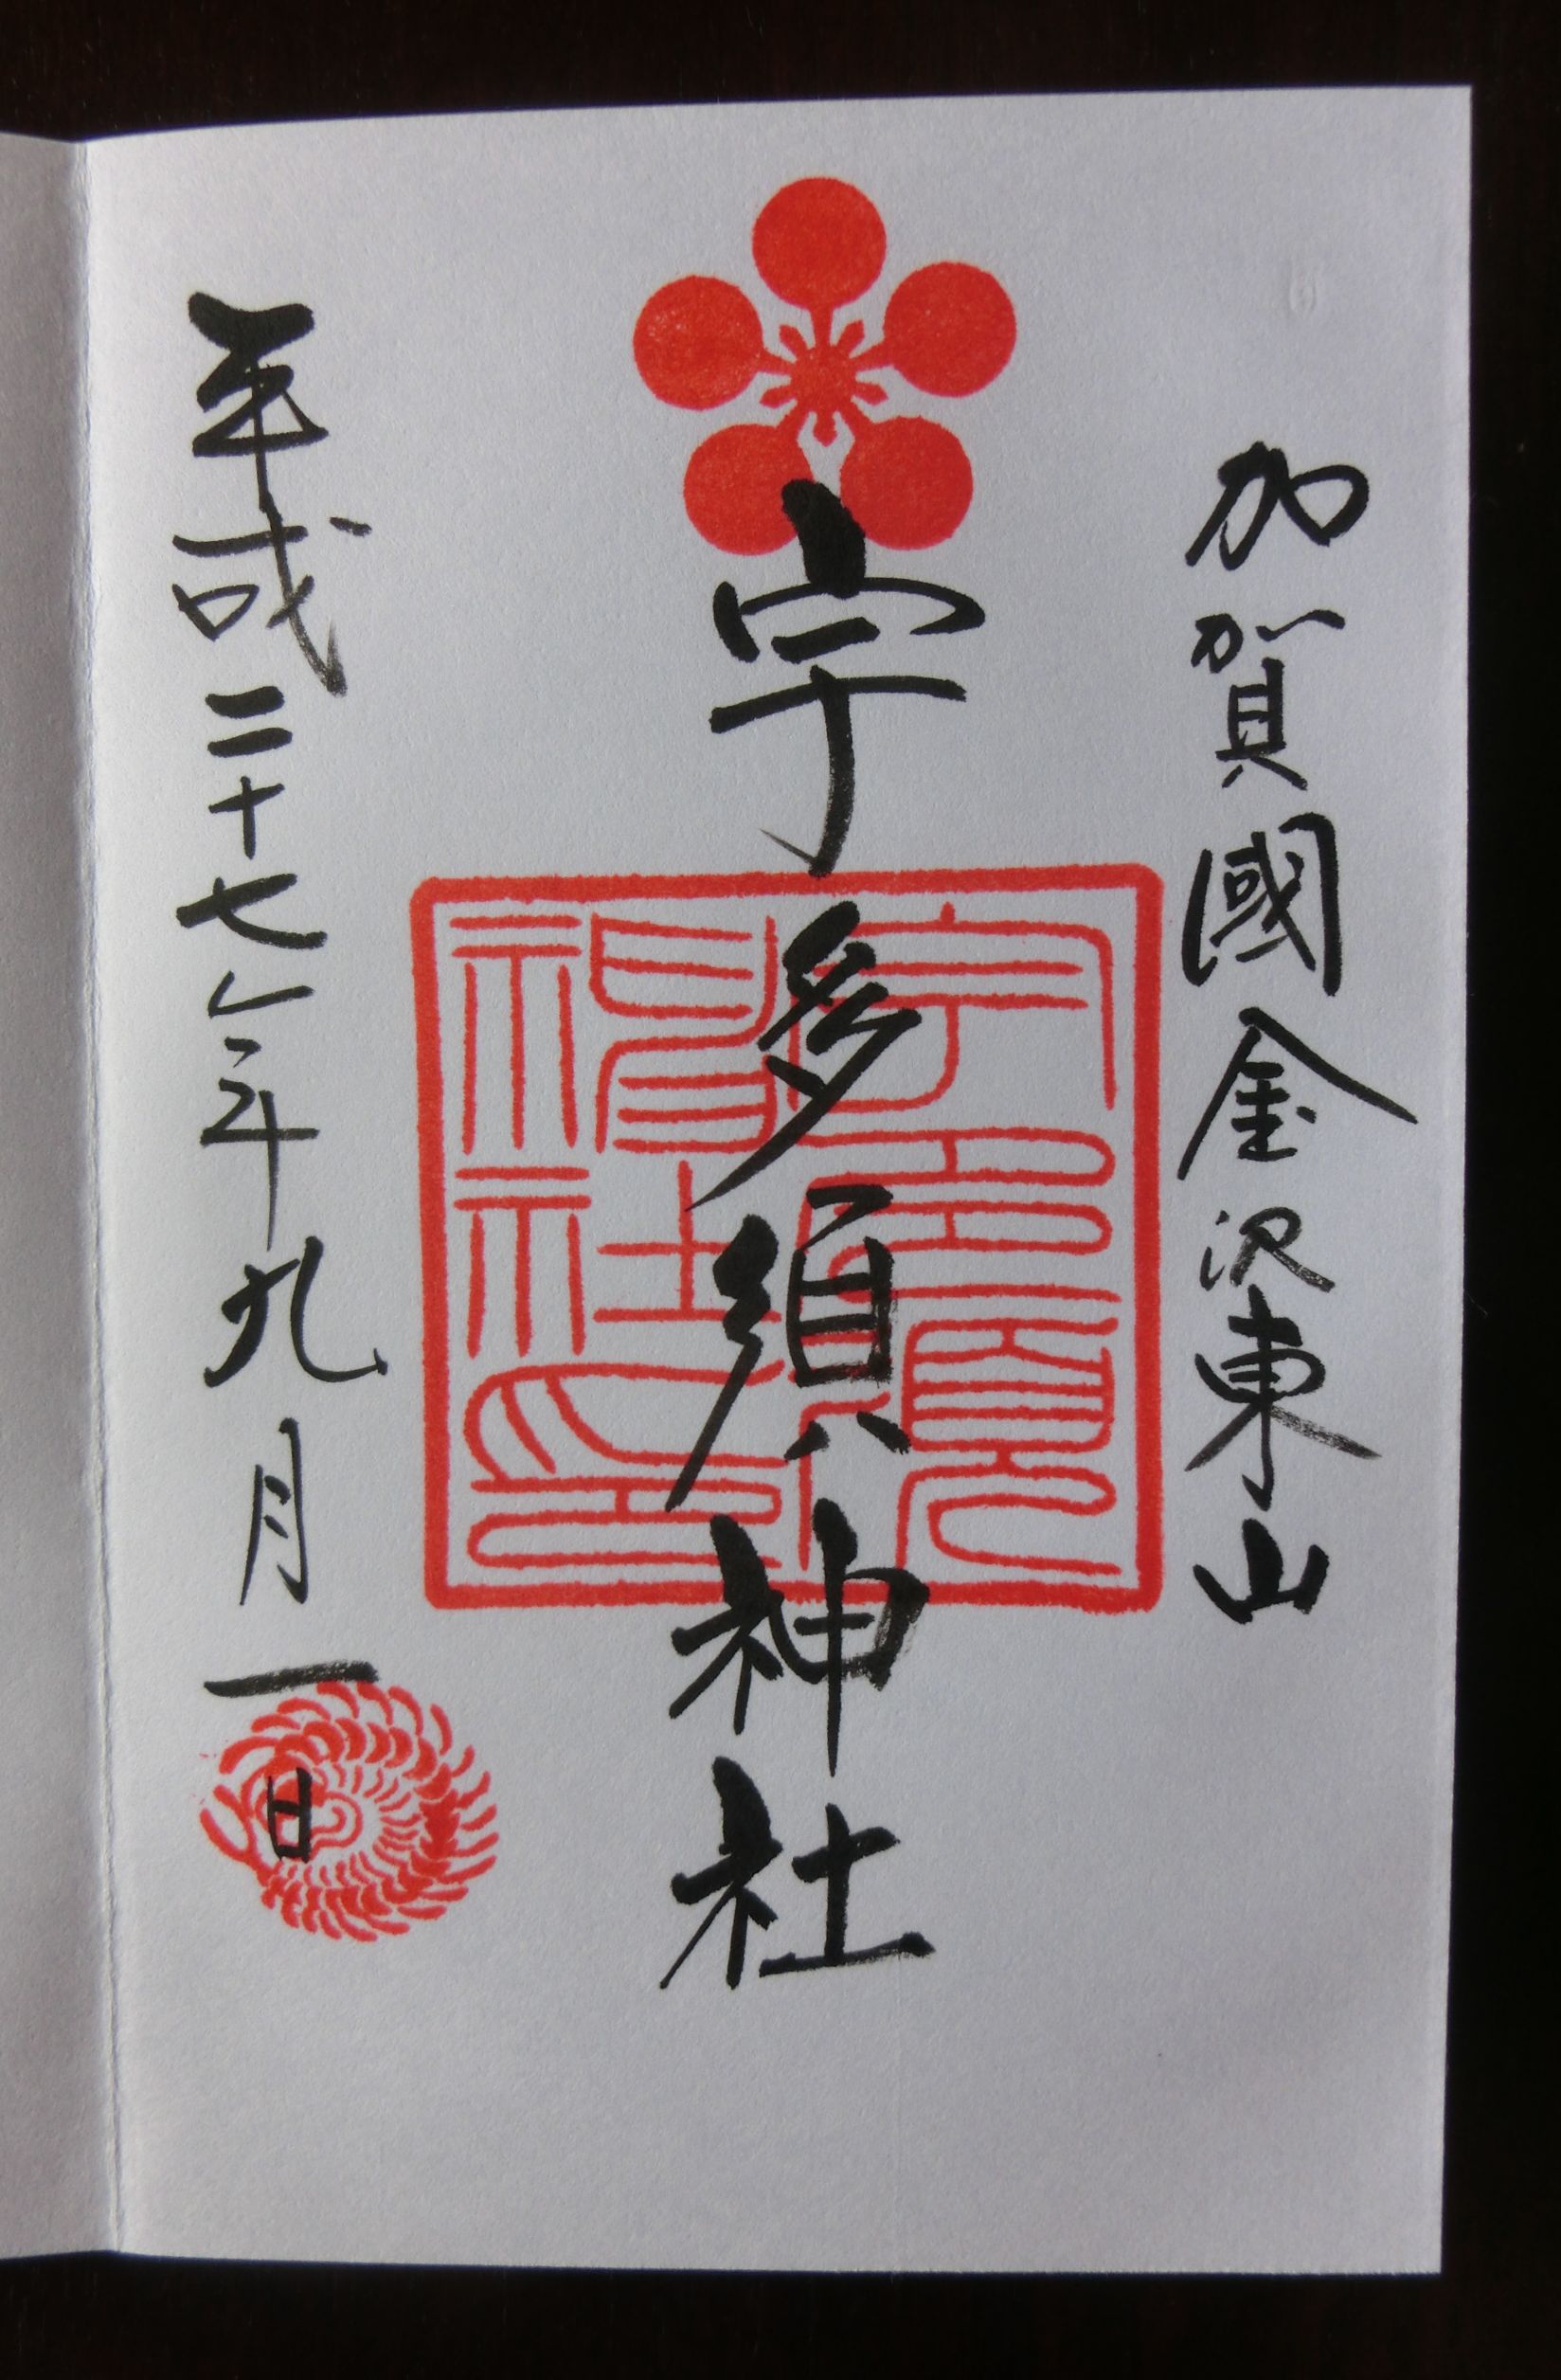 加賀國金沢東山
宇多須神社
宇多須神社印
平成二十七年九月一日